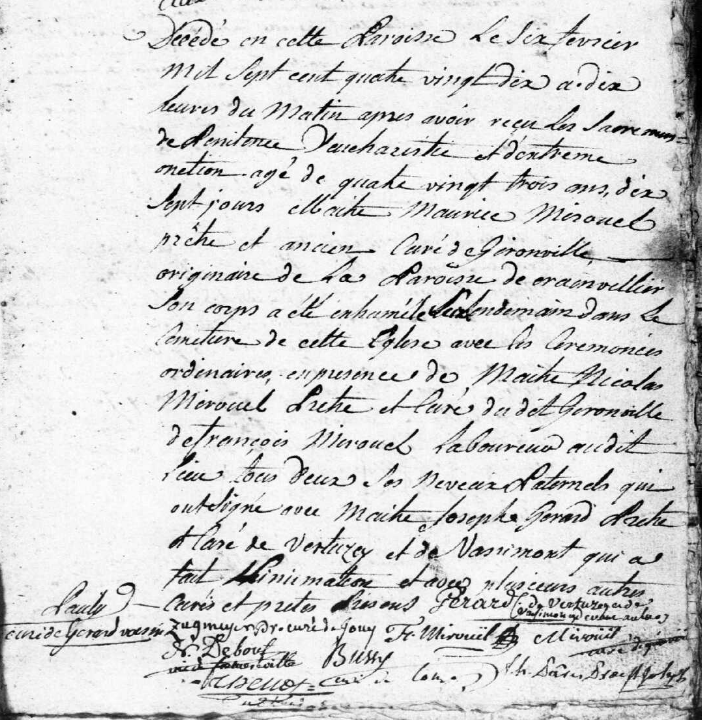 Décédé en cette Paroisse Le Six fevrier
Mil Sept cent quatre vingt dix a dix
heures du Matin apres avoir reçu Les Sacremens
de Penitence D'eucharistie et d'extreme
onction agé de quatre vingt trois ans, dix
Sept jours Maitre Maurice Mirouel
prêtre et ancien Curé de Gironville,
originaire de La Paroisse de orainvillier
Son corps a été inhumé le Lendemain dans Le
Cemetiere de cette Eglise avec les Ceremonies
ordinaires, en presence de Maitre Nicolas
Mirouel Pretre et Curé du dit Gironville
de françois Mirouel Laboureur audit
Lieu tous deux Ses Neveux Paternels qui
ont Signé avec Maitre Joseph Gerard Pretre
et Curé de Vertuzey et de Vassimont qui a
fait L'inhumation et avec plusieurs autres
Curés et pretres Presens Gerard C de Vertuzey et de
Pauly
curé de Gerardvoisin
curé de Jouy Fr Mirouel Mirouel
Debouf Bussy curé de
curé